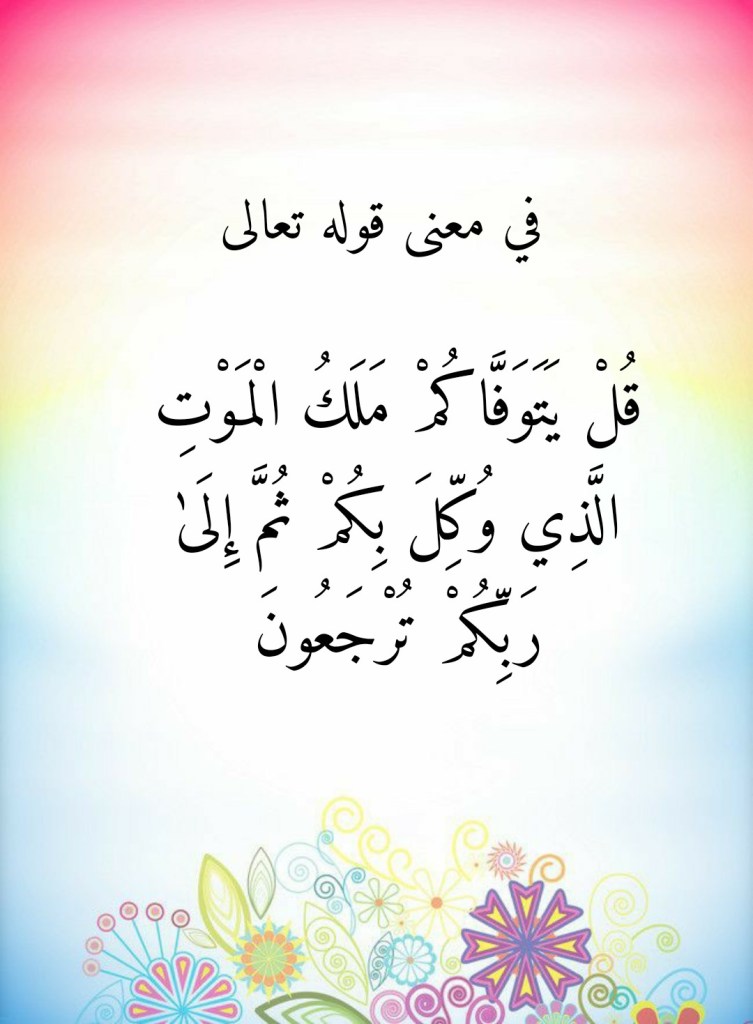 في معنى قوله تعالى
قُلْ يَتَوَفَّاكُمْ مَلَكُ الْمَوْتِ
الَّذِي وُكِّلَ بِكُمْ ثُمَّ إِلَىٰ
رَبِّكُمْ تُرْجَعُونَ